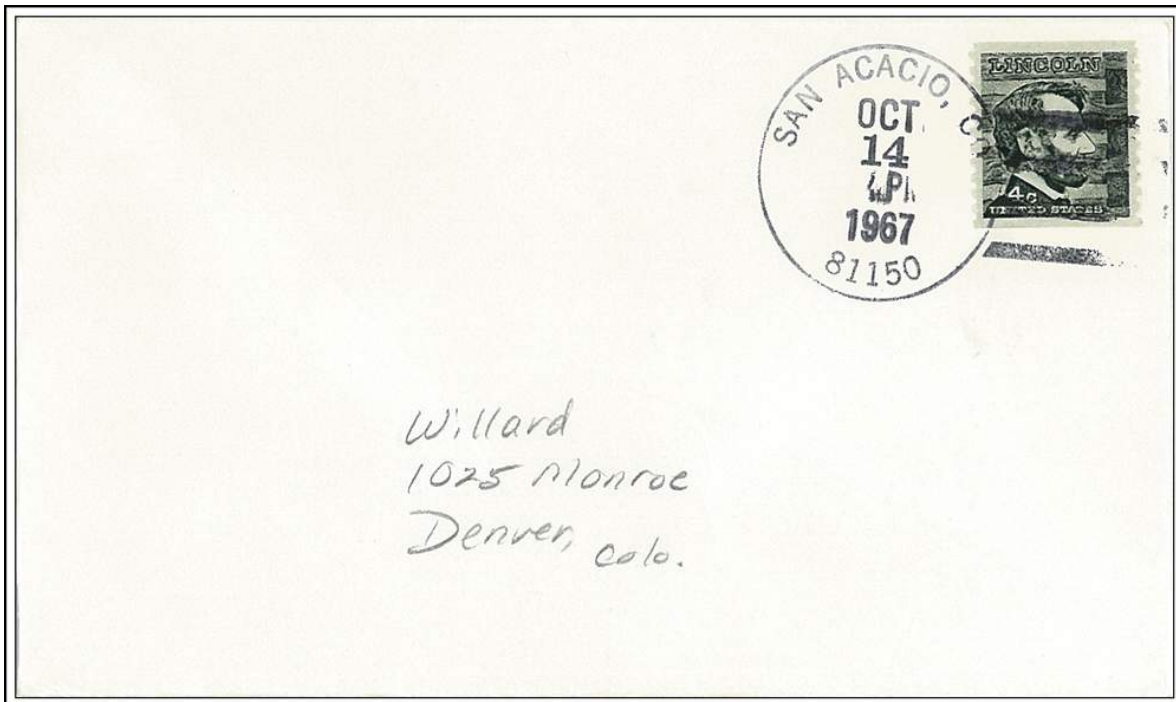 SAN ACACIO, C
OCT
14
4PM
1967
81150
LINCOLN
4c
UNITED STATES
Willard
1025 Monroe
Denver, Colo.